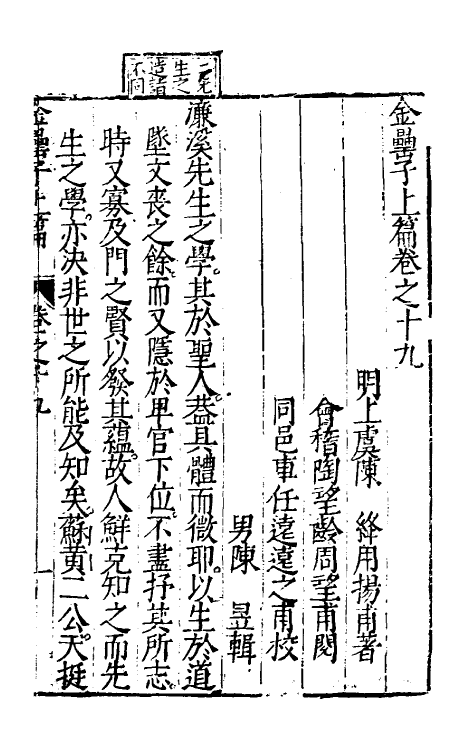 金罍子上篇卷之十九
明上虞陳 絳用揚甫著
會稽陶望齡周望甫閱
同邑車任遠遠之甫校
男陳 昱輯
二先
生之
造詣
不同
濂溪先生之學其於聖人蓋具體而微耶以生於道
墜文喪之餘而又隱於卑官下位不盡抒其所志
時又寡及門之賢以發其蘊故人鮮克知之而先
生之學亦決非世之所能及知矣蘇黃二公天挺
金罍子上篇 卷之十九 一